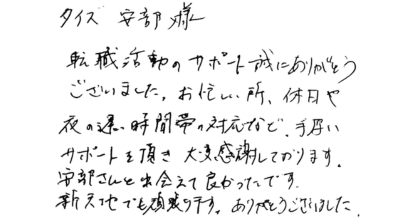 タイズ 安部様
転職活動のサポート誠にありがとう
ございました。お忙しい所、休日や
夜の遅い時間帯の対応など、手厚い
サポートを頂き大変感謝しております。
安部さんと出会えて良かったです。
新天地でも頑張ります。ありがとうございました。